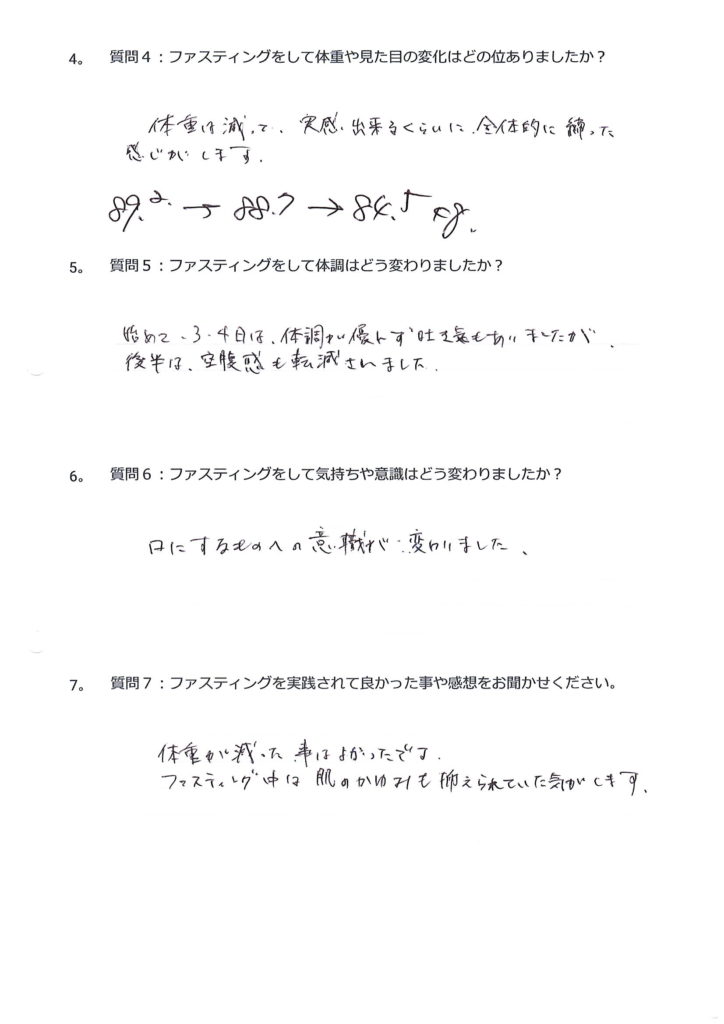 4。 質問４：ファスティングをして体重や見た目の変化はどの位ありましたか？
体重は減って、実感出来るくらいに、全体的に締った
感じがします。
89.2 → 88.7 → 84.5 kg.
5。 質問５：ファスティングをして体調はどう変わりましたか？
始めて、3・4日は、体調が優れず吐き気もありましたが、
後半は、空腹感も転減されました.
6。 質問６：ファスティングをして気持ちや意識はどう変わりましたか？
口にするものへの意識が変わりました、
7。 質問７：ファスティングを実践されて良かった事や感想をお聞かせください。
体重が減った事はよかったです.
ファスティング中は肌のかゆみも抑えられていた気がします.